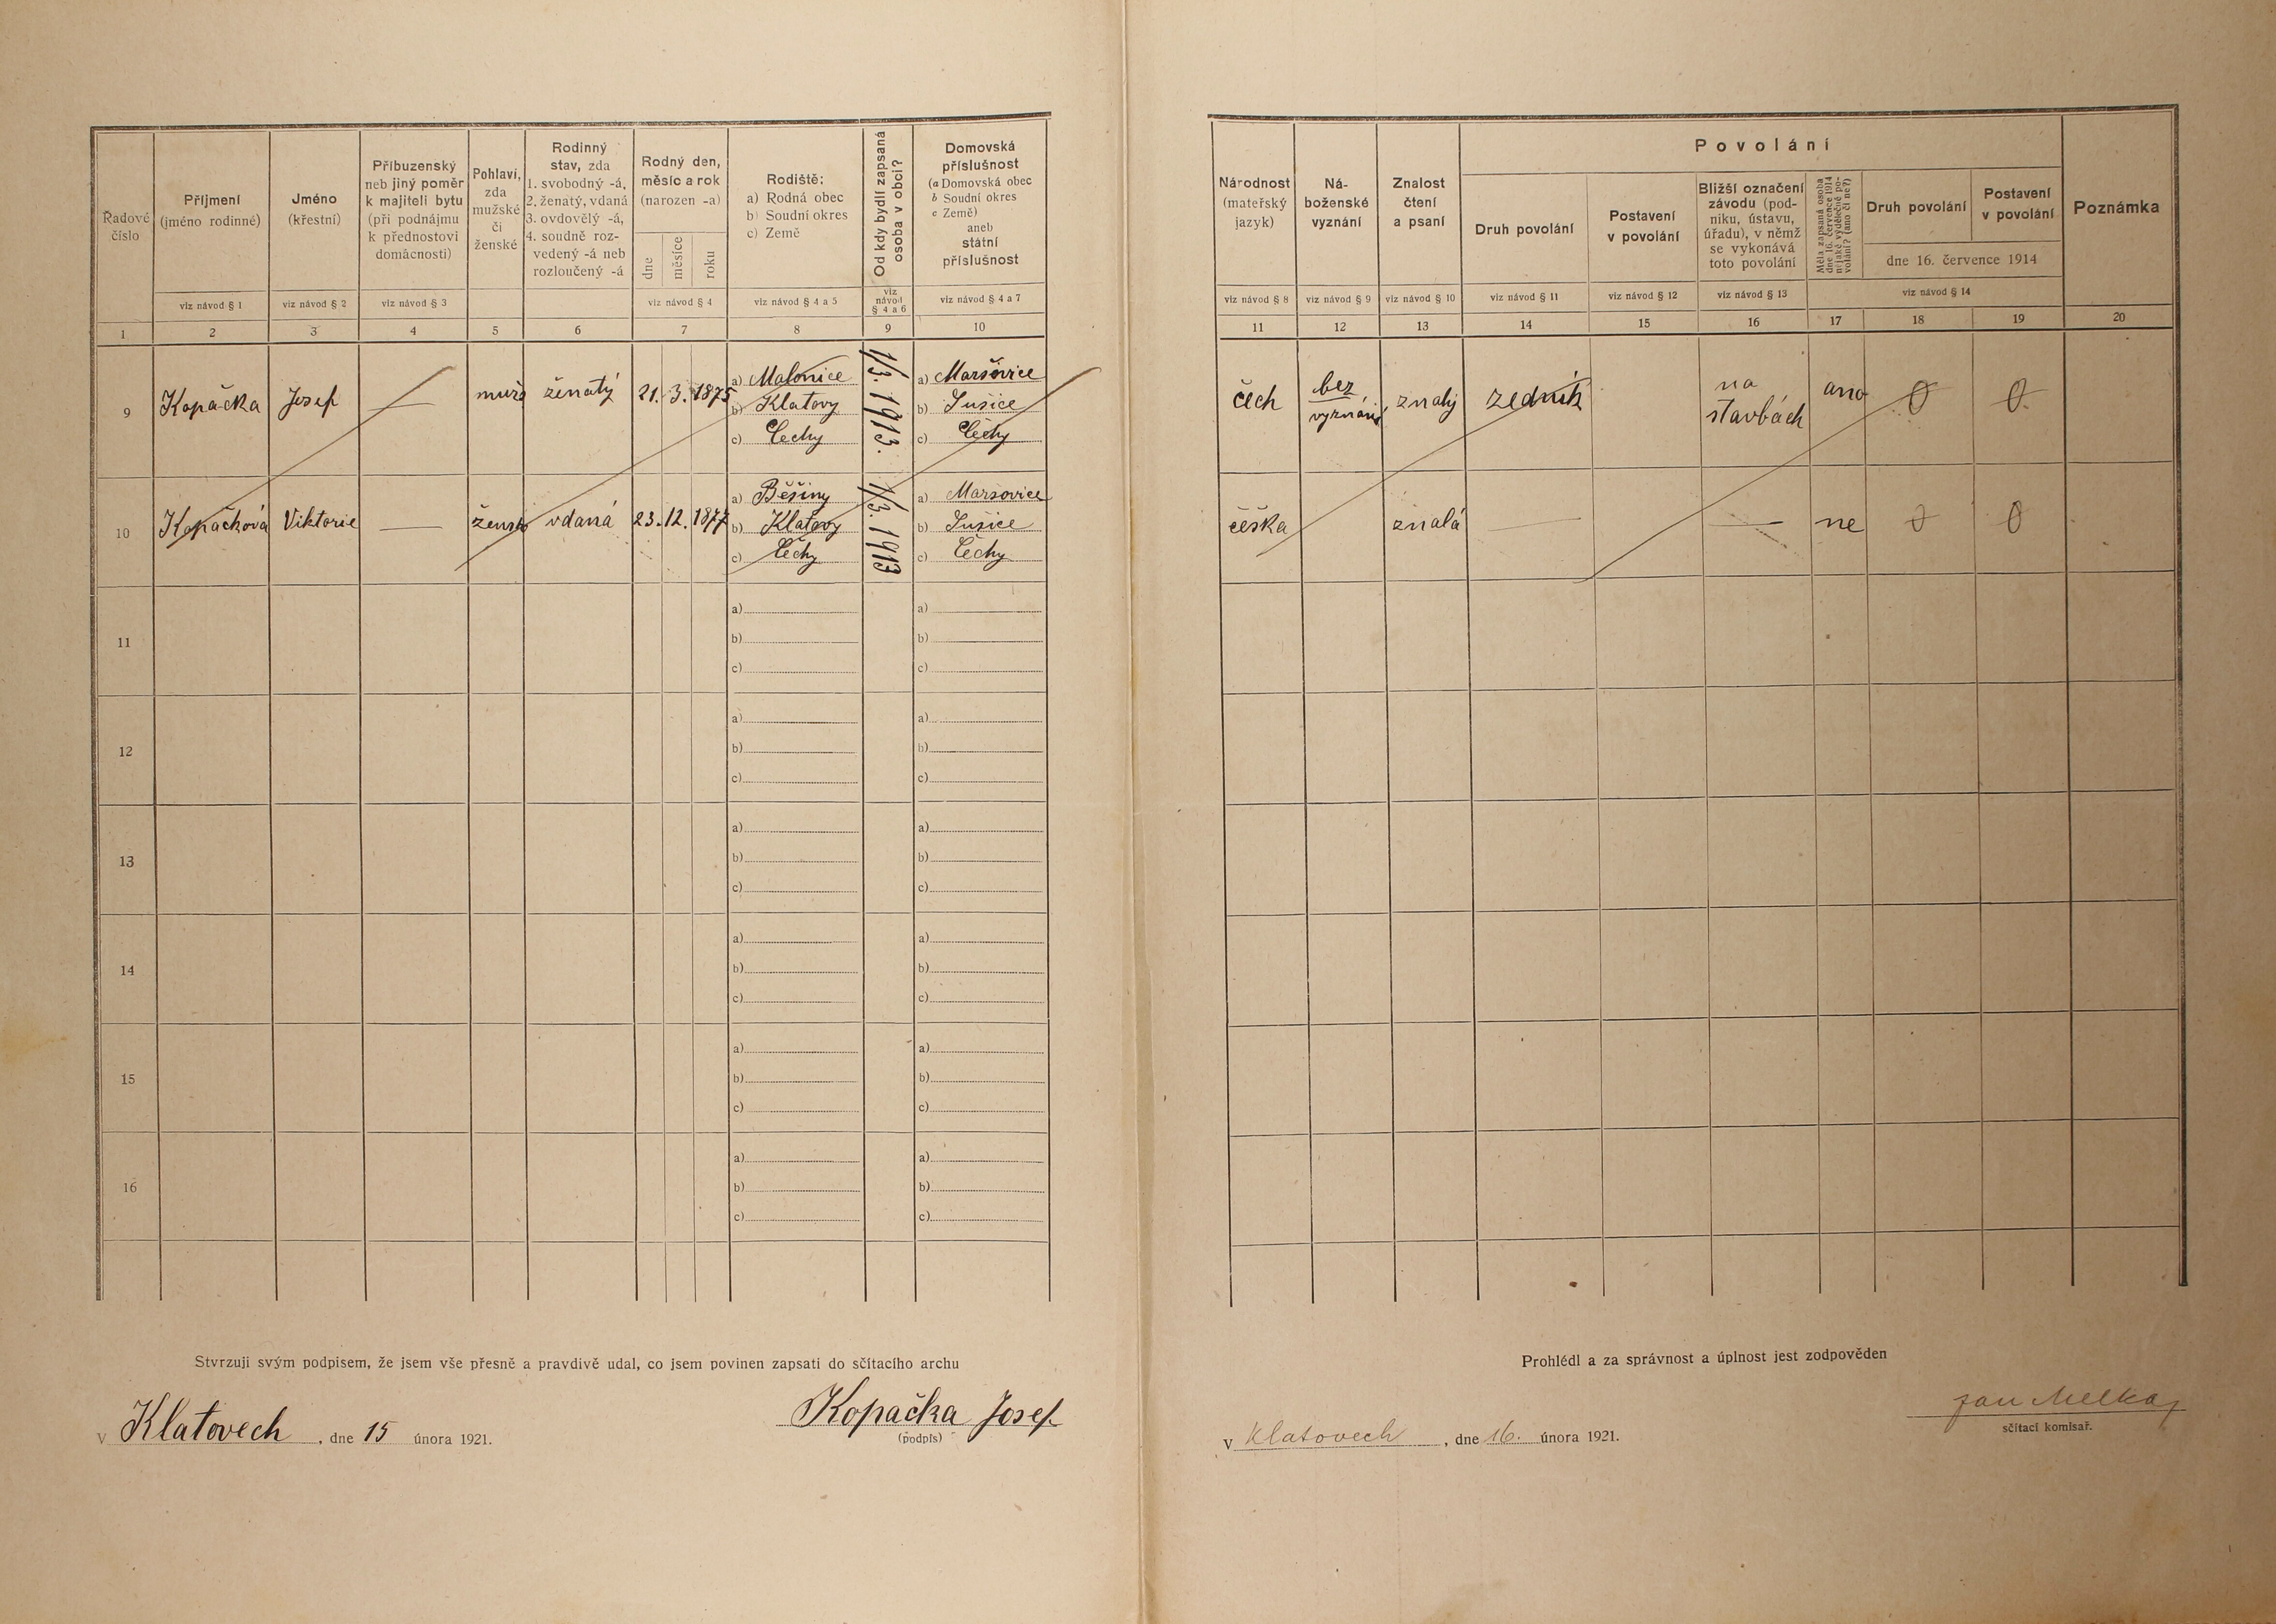 Řadové číslo
Příjmení
(jméno rodinné)
viz návod § 1
Jméno
(křestní)
viz návod § 2
Příbuzenský
neb jiný poměr
k majiteli bytu
(při podnájmu
k přednostovi
domácnosti)
viz návod § 3
Pohlaví,
zda
mužské
či
ženské
Rodinný
stav, zda
1. svobodný -á,
2. ženatý, vdaná
3. ovdovělý -á,
4. soudně roz-
vedený -á neb
rozloučený -á
Rodný den,
měsíc a rok
(narozen -a)
dne
měsíce
roku
viz návod § 4
Rodiště:
a) Rodná obec
b) Soudní okres
c) Země
viz návod § 4 a 5
Od kdy bydlí zapsaná
osoba v obci?
viz
návod
§ 4 a 6
Domovská
příslušnost
(a Domovská obec
b Soudní okres
c Země)
aneb
státní
příslušnost
viz návod § 4 a 7
1 2 3 4 5 6 7 8 9 10
9 Kopačka Josef — mužs ženatý 21. 3. 1875
a) Malonice
b) Klatovy
c) Čechy
1/3. 1913.
a) Maršovice
b) Sušice
c) Čechy
10 Kopačková Viktorie — žensk vdaná 23. 12. 1877
a) Běšiny
b) Klatovy
c) Čechy
1/3. 1913
a) Marsovice
b) Sušice
c) Čechy
11
a) a)
b) b)
c) c)
12
a) a)
b) b)
c) c)
13
a) a)
b) b)
c) c)
14
a) a)
b) b)
c) c)
15
a) a)
b) b)
c) c)
16
a) a)
b) b)
c) c)
Stvrzuji svým podpisem, že jsem vše přesně a pravdivě udal, co jsem povinen zapsati do sčítacího archu
v Klatovech, dne 15 února 1921.
Kopačka Josef
(podpis)
Národnost
(mateřský
jazyk)
viz návod § 8
Ná-
boženské
vyznání
viz návod § 9
Znalost
čtení
a psaní
viz návod § 10
Povolání
Druh povolání
viz návod § 11
Postavení
v povolání
viz návod § 12
Bližší označení
závodu (pod-
niku, ústavu,
úřadu), v němž
se vykonává
toto povolání
viz návod § 13
Měla zapsaná osoba
dne 16. července 1914
nějaké výdělečné po-
volání? (ano či ne?)
Druh povolání
Postavení
v povolání
dne 16. července 1914
viz návod § 14
Poznámka
11 12 13 14 15 16 17 18 19 20
čech bez
vyznání znalý zedník na
stavbách ano 0 0
češka znalá — — ne 0 0
Prohlédl a za správnost a úplnost jest zodpověden
v Klatovech, dne 16. února 1921.
Jan
sčítací komisař.